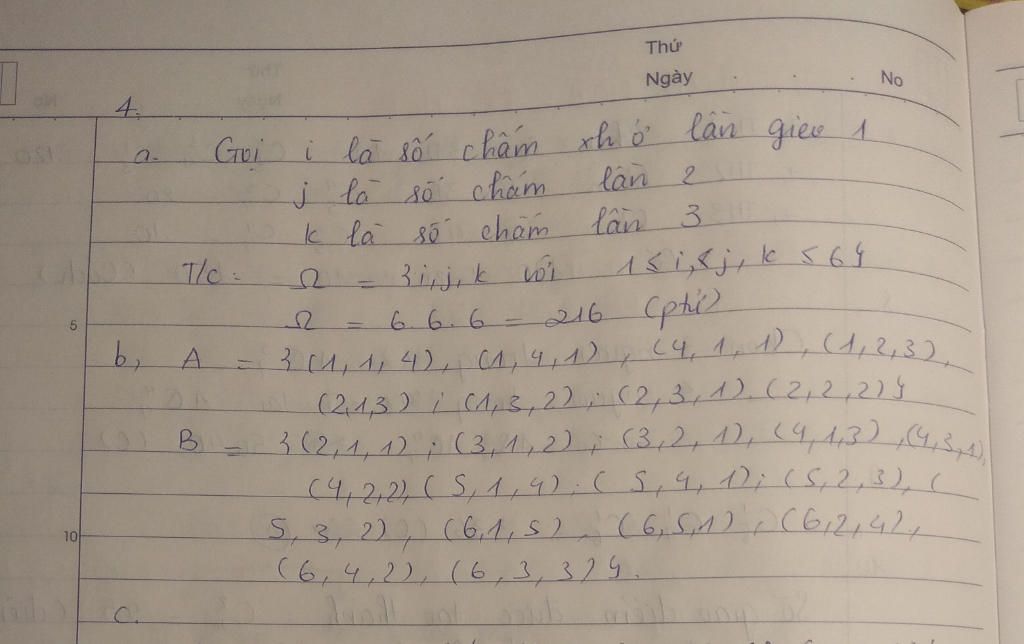 Thứ
Ngày . . . No
4.
a. Gọi i là số chấm xh ở lần gieo 1
j là số chấm lần 2
k là số chấm lần 3
T/c: Ω = {i,j,k với 1≤i,≤j,k≤6}
5 Ω = 6.6.6 = 216 (ptử)
b, A = {(1,1,4), (1,4,1), (4,1,1), (1,2,3),
(2,1,3); (1,3,2); (2,3,1). (2,2,2)}
B = {(2,1,1); (3,1,2); (3,2,1), (4,1,3), (4,3,1),
(4,2,2), (5,1,4); (5,4,1); (5,2,3), (
10 5,3,2), (6,1,5), (6,5,1), (6,2,4),
(6,4,2), (6,3,3)}.
c.